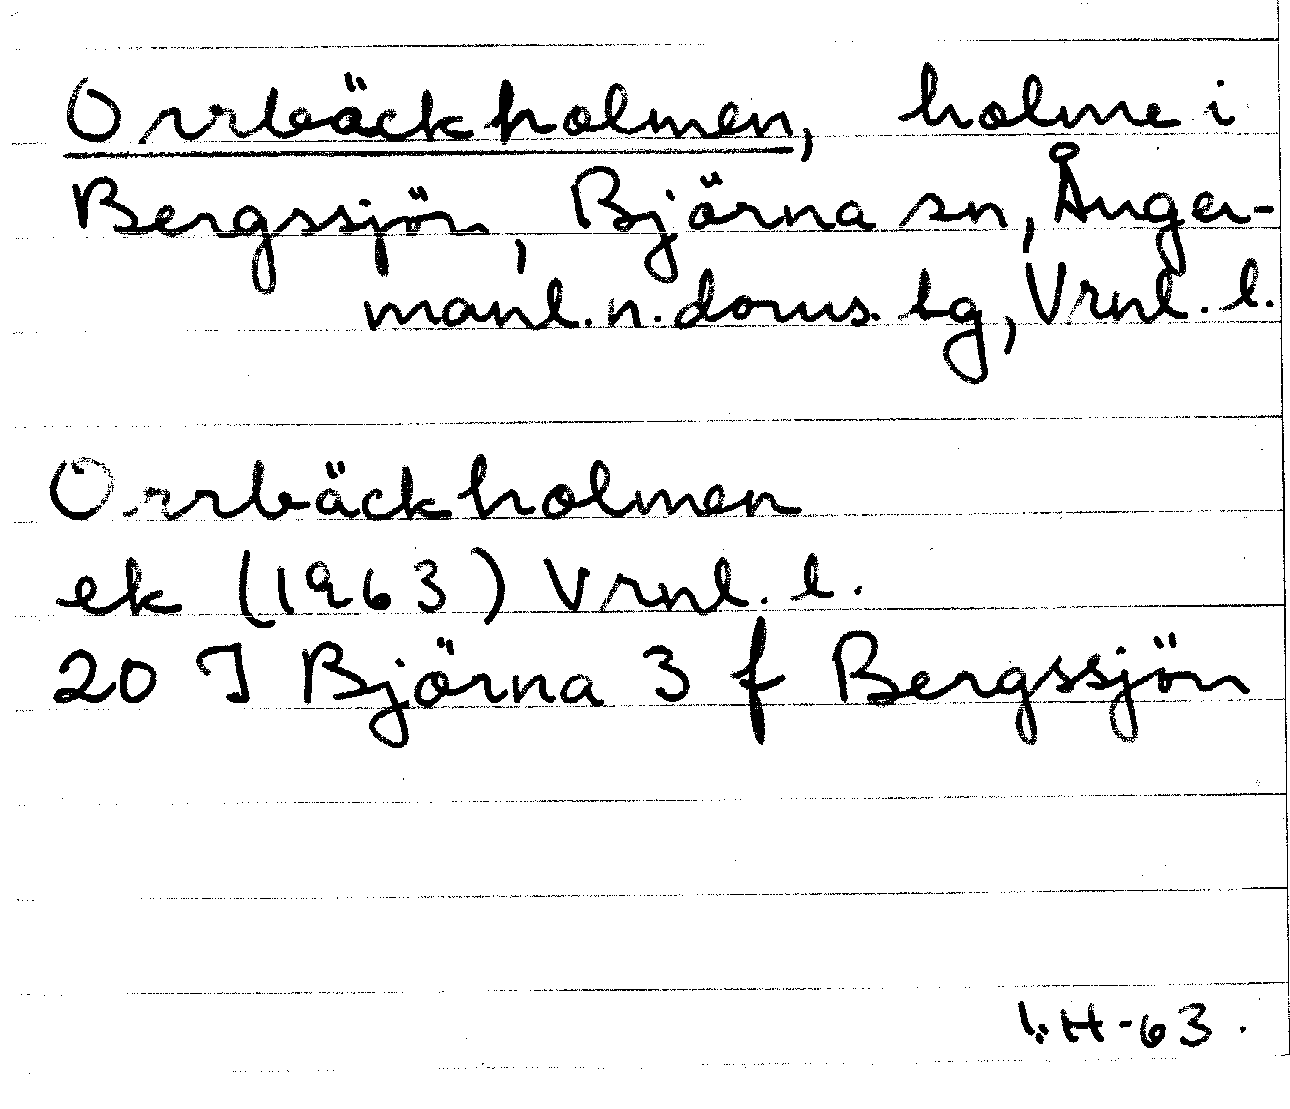 Orrbäckholmen, holme i
Bergssjön, Björna sn, Ånger-
manl. n. doms. tg, Vrnl. l.
Orrbäckholmen
ek (1963) Vrnl. l.
20 J Björna 3 f Bergssjön
H-63.